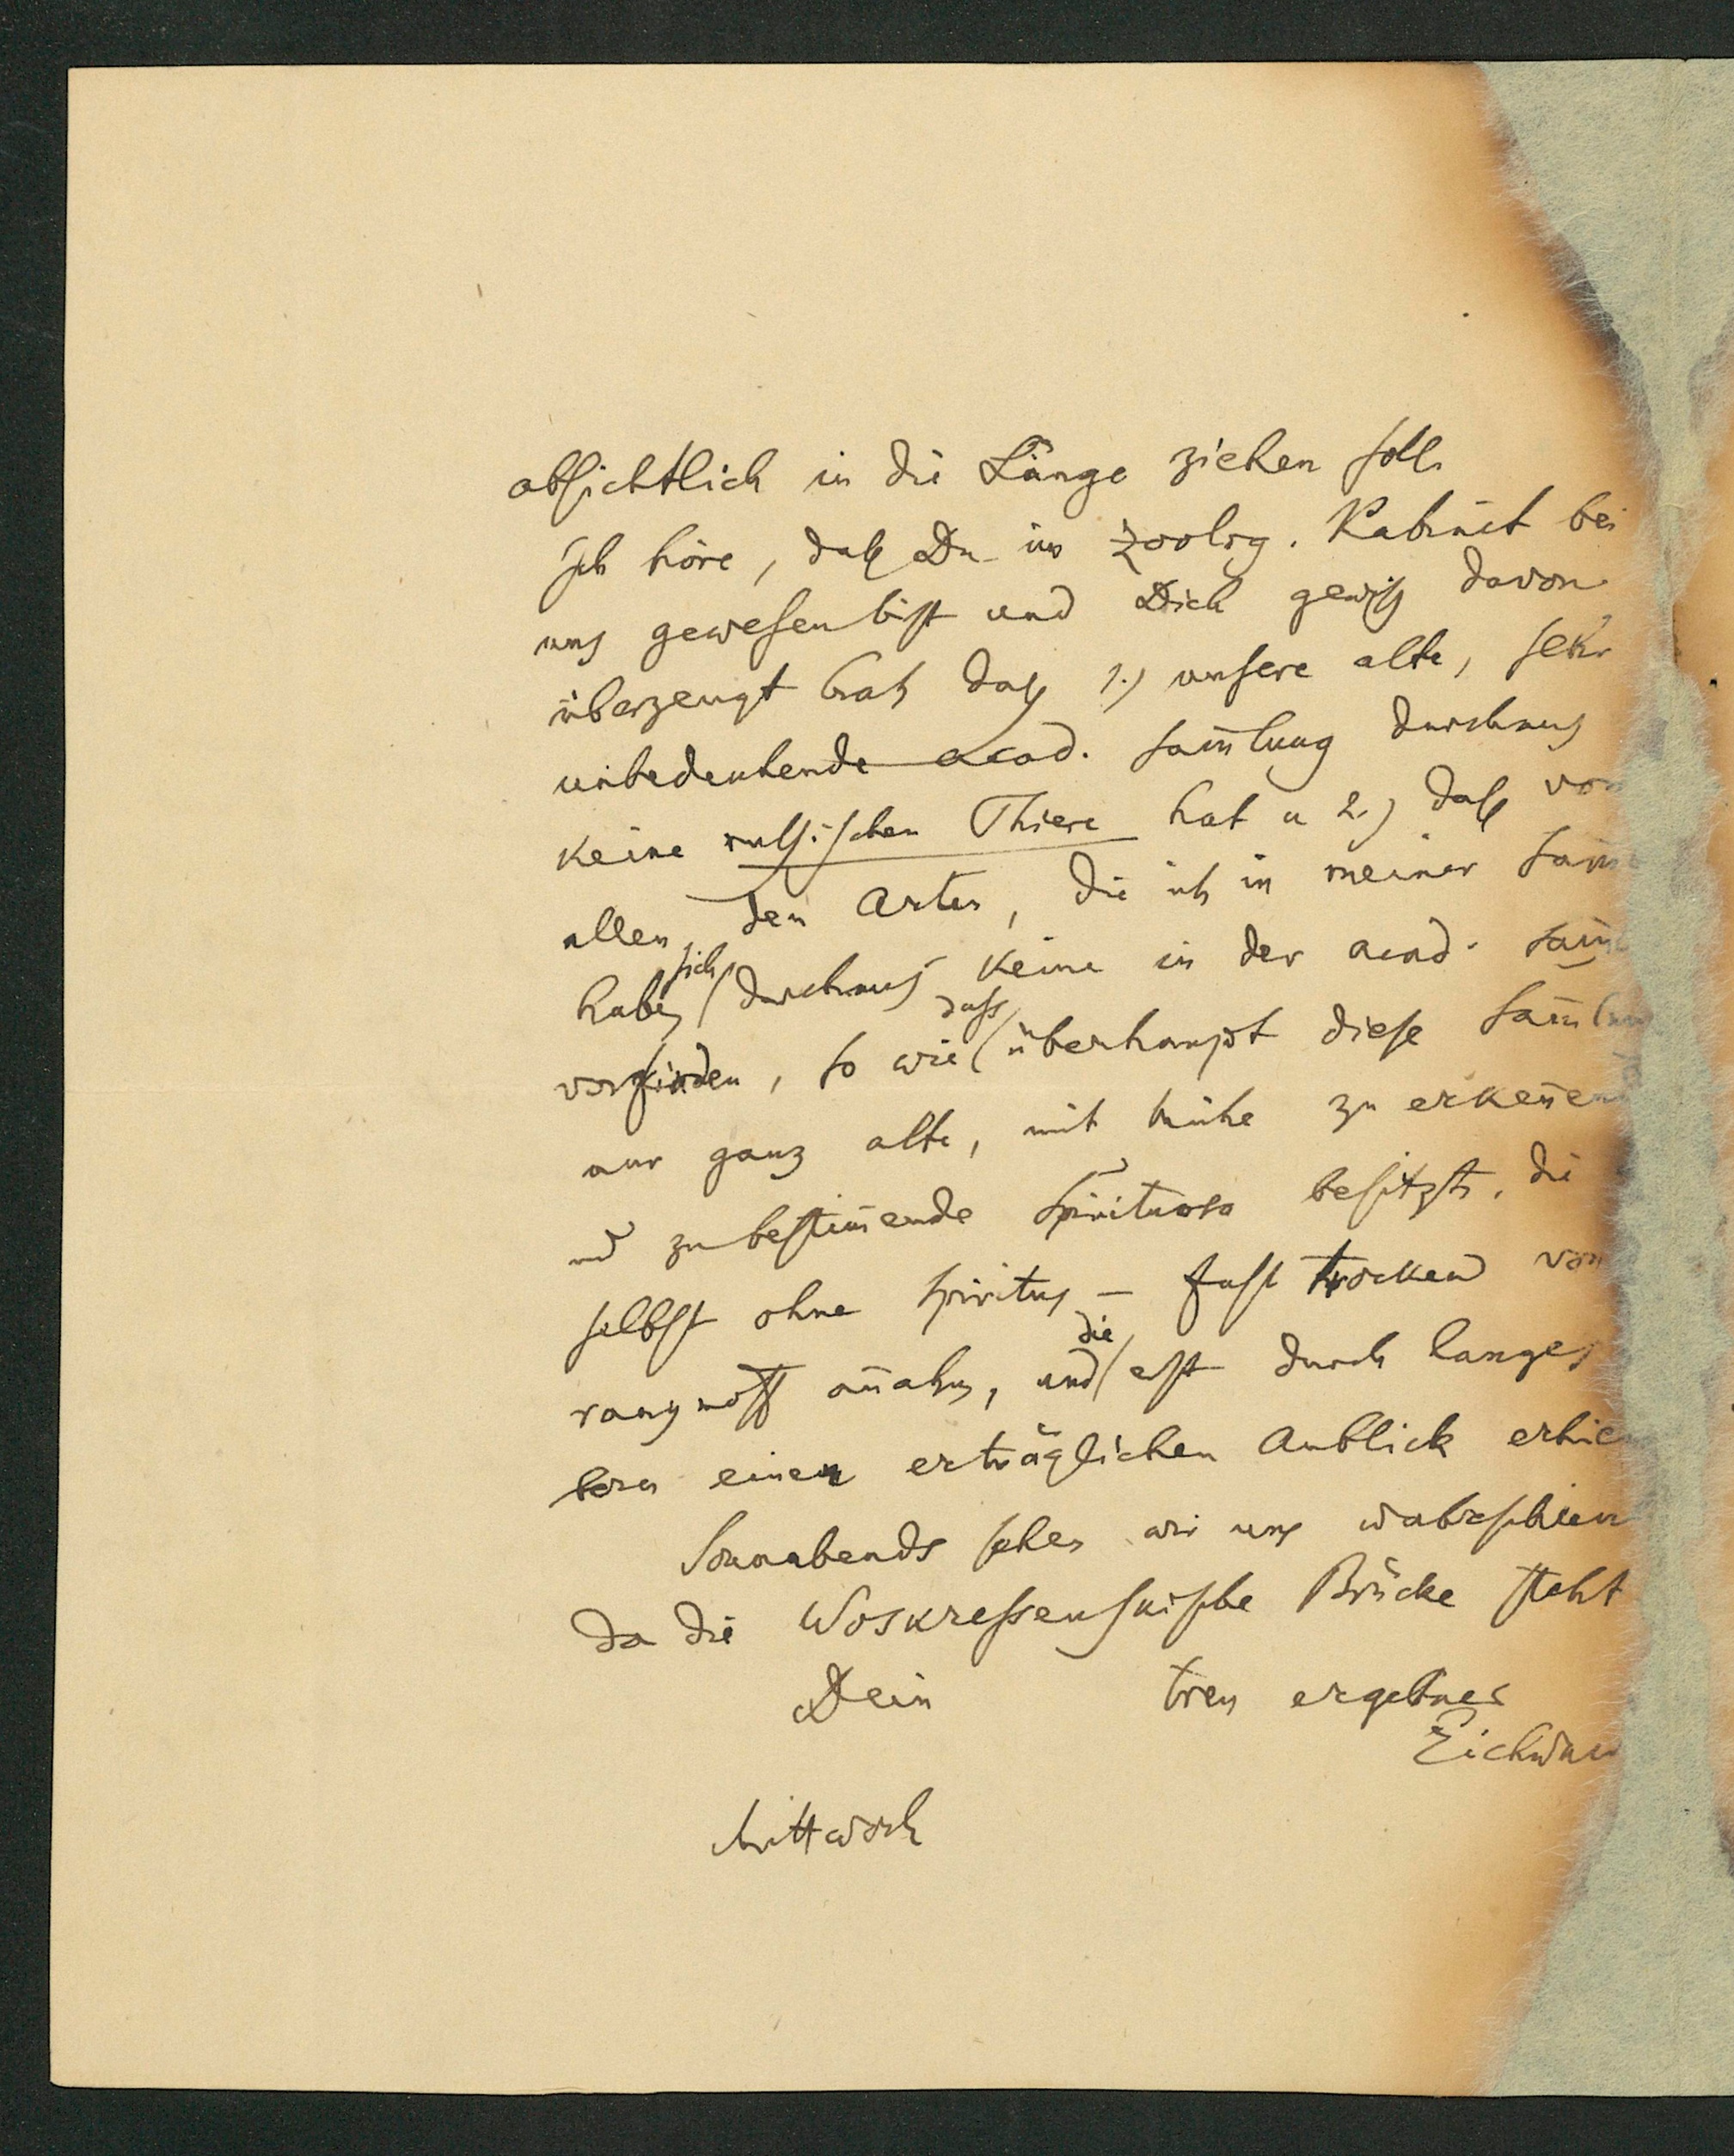 absichtlich in die Länge ziehen soll.
Ich höre, daß Du im zoolog. Kabinet bei
uns gewesen bist und Dich gewiß davon
überzeugt hast daß 1.) unsere alte, sehr
unbedeutende acad. Sam̄lung durchaus
keine russischen Thiere hat u 2.) daß von
allen den Arten, die ich in meiner Sam̄
habe, sich durchaus keine in der acad. Sam̄
vorfinden, so wie dass überhaupt diese Sam̄lung
nur ganz alte, mit Mühe zu erken̄en
und zu bestim̄ende Spirituosa besitzt, die
selbst ohne Spiritus – fast trocken von
an̄ahm, und die erst durch langes
einen erträglichen Anblick erhie
Sonnabends sehen wir uns wahrschein
da die Woskressenskische Brücke steht
Dein treu ergebner
Eichwald
Mittwoch